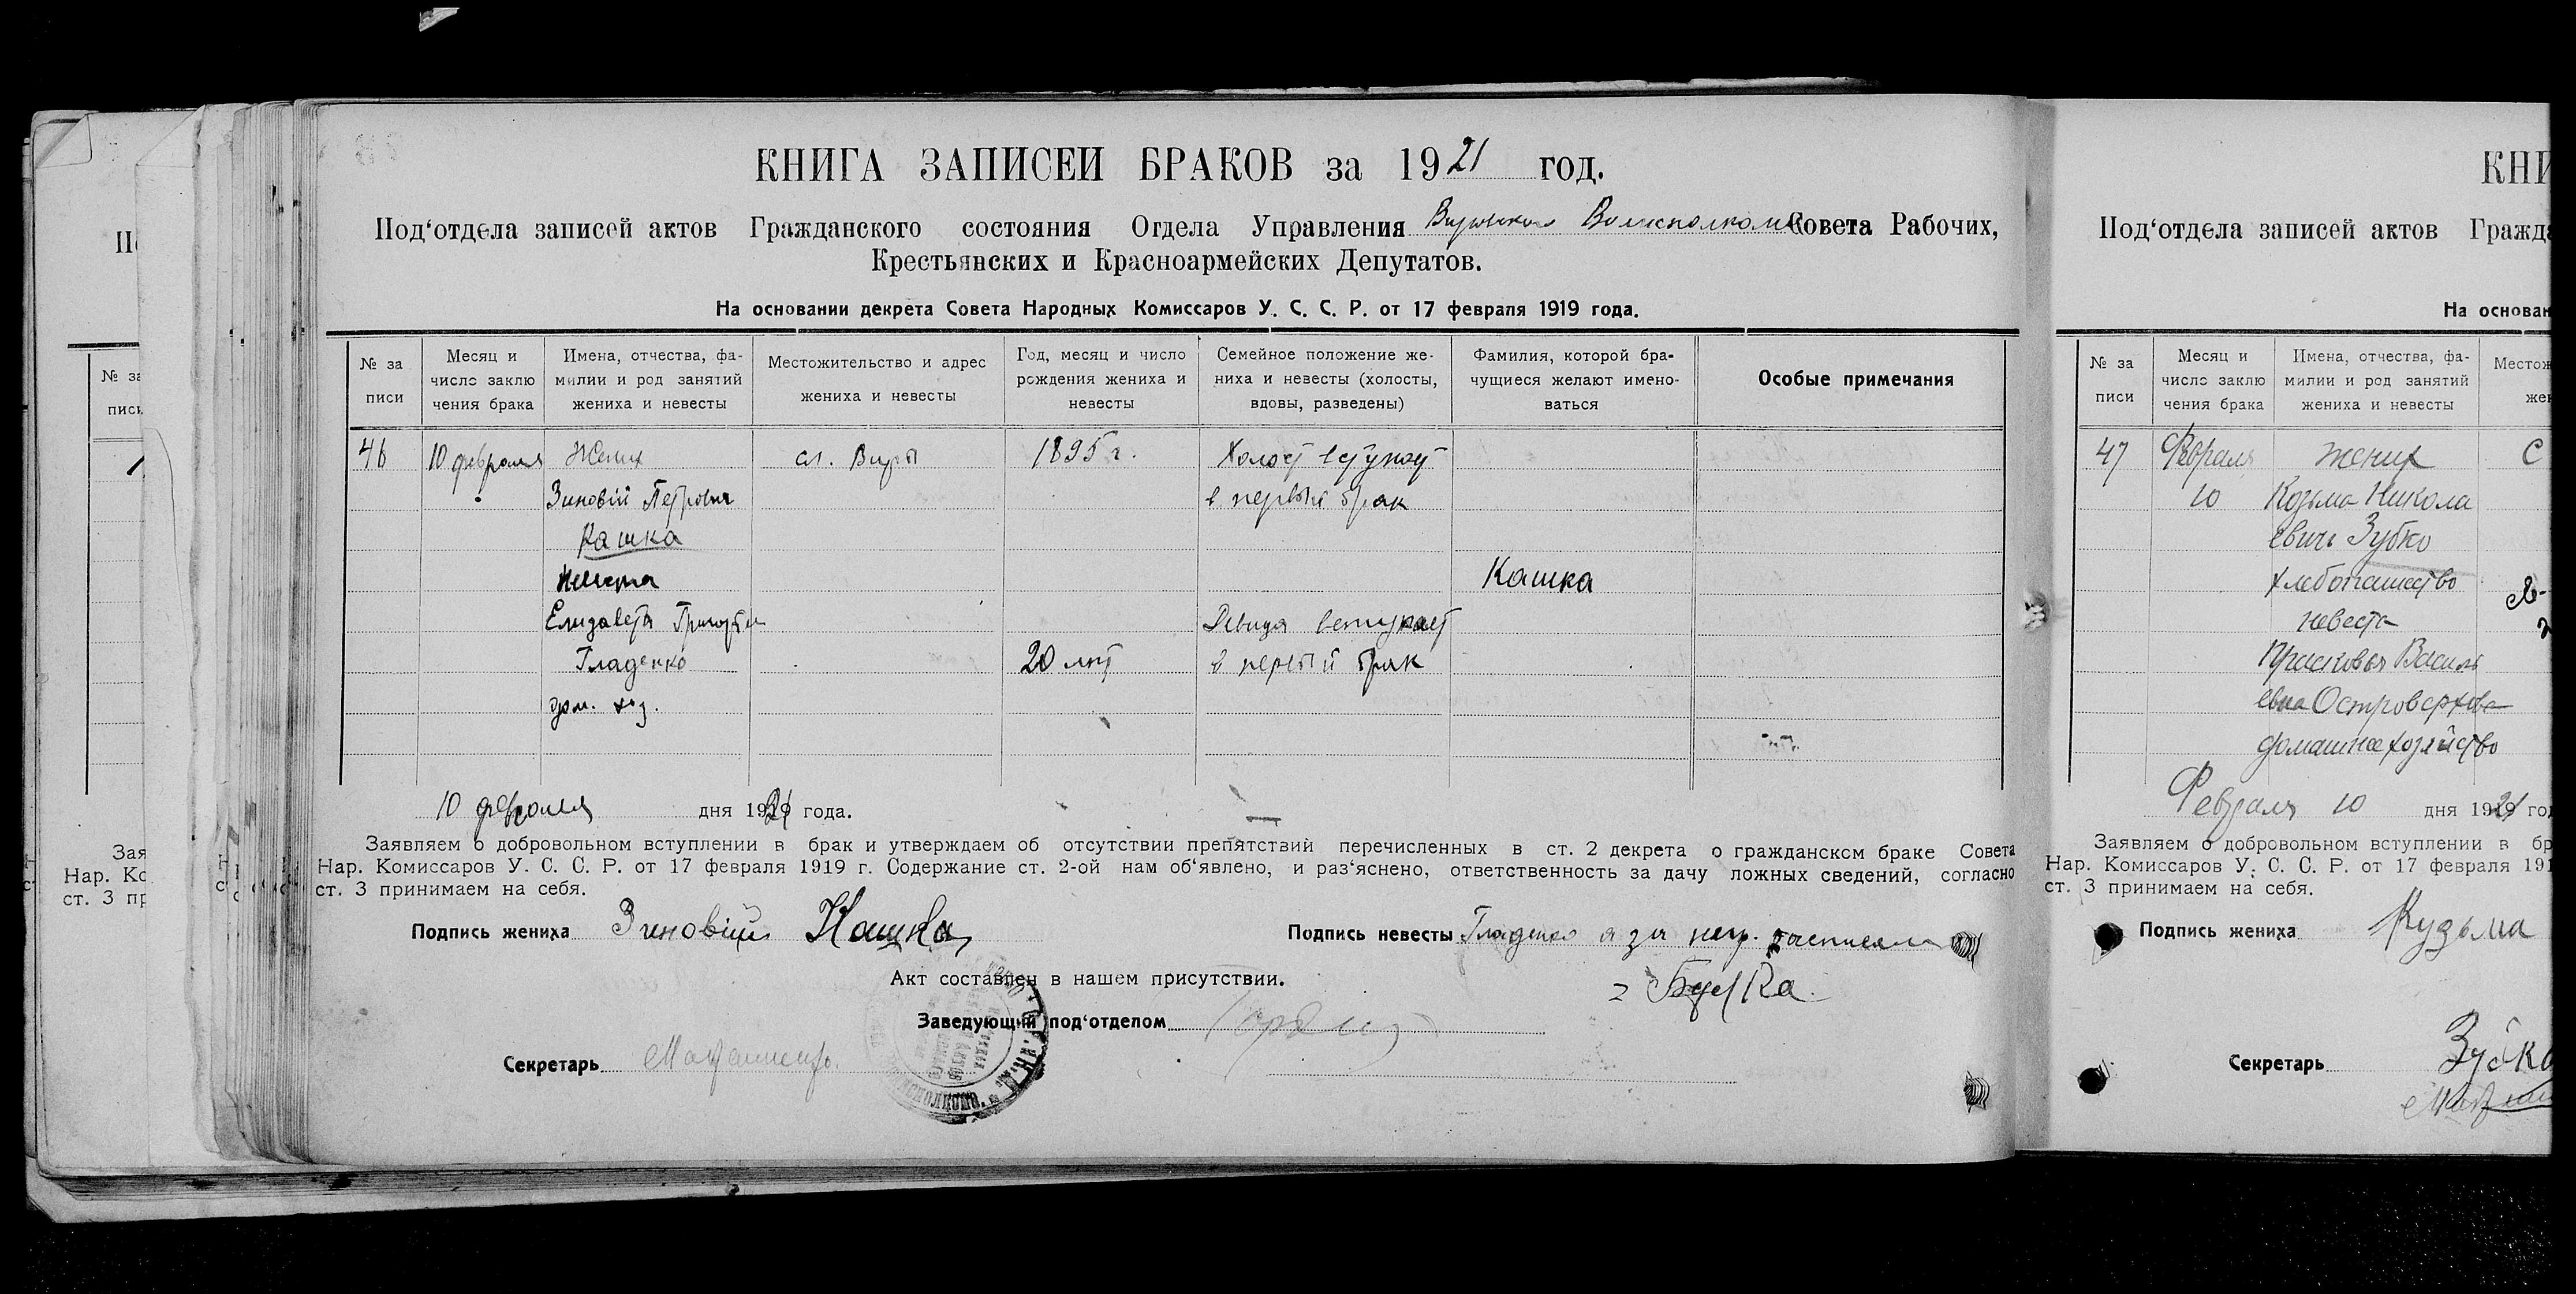 КНИГА ЗАПИСЕЙ БРАКОВ за 1921 год.
Под‘отдела записей актов Гражданского состояния Отдела Управления Совета Рабочих,
Крестьянских и Красноармейских Депутатов.
На основании декрета Совета Народных Комиссаров У. С. С. Р. от 17 февраля 1919 года.
№ за писи
Месяц и число заклю чения брака
Имена, отчества, фа- милии и род занятий жениха и невесты
Местожительство и адрес жениха и невесты
Год, месяц и число рождения жениха и невесты
Семейное положение же- ниха и невесты (холосты, вдовы, разведены)
Фамилия, которой бра- чущиеся желают имено- ваться
Особые примечания
46 10 февраля Жених сл. Виры 1895 г. Холост вступает
Зиновій Петрович в первый брак
Кашка
Невеста Кашка
Елизавета Девица вступает
Гладенко 20 лет в первый брак
дом. хоз.
10 февраля дня 1921 года.
Заявляем о добровольном вступлении в брак и утверждаем об отсутствии препятствий перечисленных в ст. 2 декрета о гражданском браке Совета
Нар. Комиссаров У. С. С. Р. от 17 февраля 1919 г. Содержание ст. 2-ой нам об‘явлено, и раз‘яснено, ответственность за дачу ложных сведений, согласно
ст. 3 принимаем на себя.
Подпись жениха Зиновій Кашка
Подпись невесты Гладенко а за негр.
Акт составлен в нашем присутствии.
Заведующий под‘отделом
Секретарь
КНИ
Под‘отдела записей актов Гражда
На основан
№ за писи
Месяц и число заклю чения брака
Имена, отчества, фа- милии и род занятий жениха и невесты
Местож жен
47 Февраля жених С
10 Козьма Никола
евич Зубко
хлебопашество
невеста
Прасковья Василь
евна Островерхова
домашнее хозяйство
Февраля 10 дня 1921 го
Заявляем о добровольном вступлении в бр
Нар. Комиссаров У. С. С. Р. от 17 февраля 191
ст. 3 принимаем на себя.
Подпись жениха Кузьма
Зубко
Секретарь